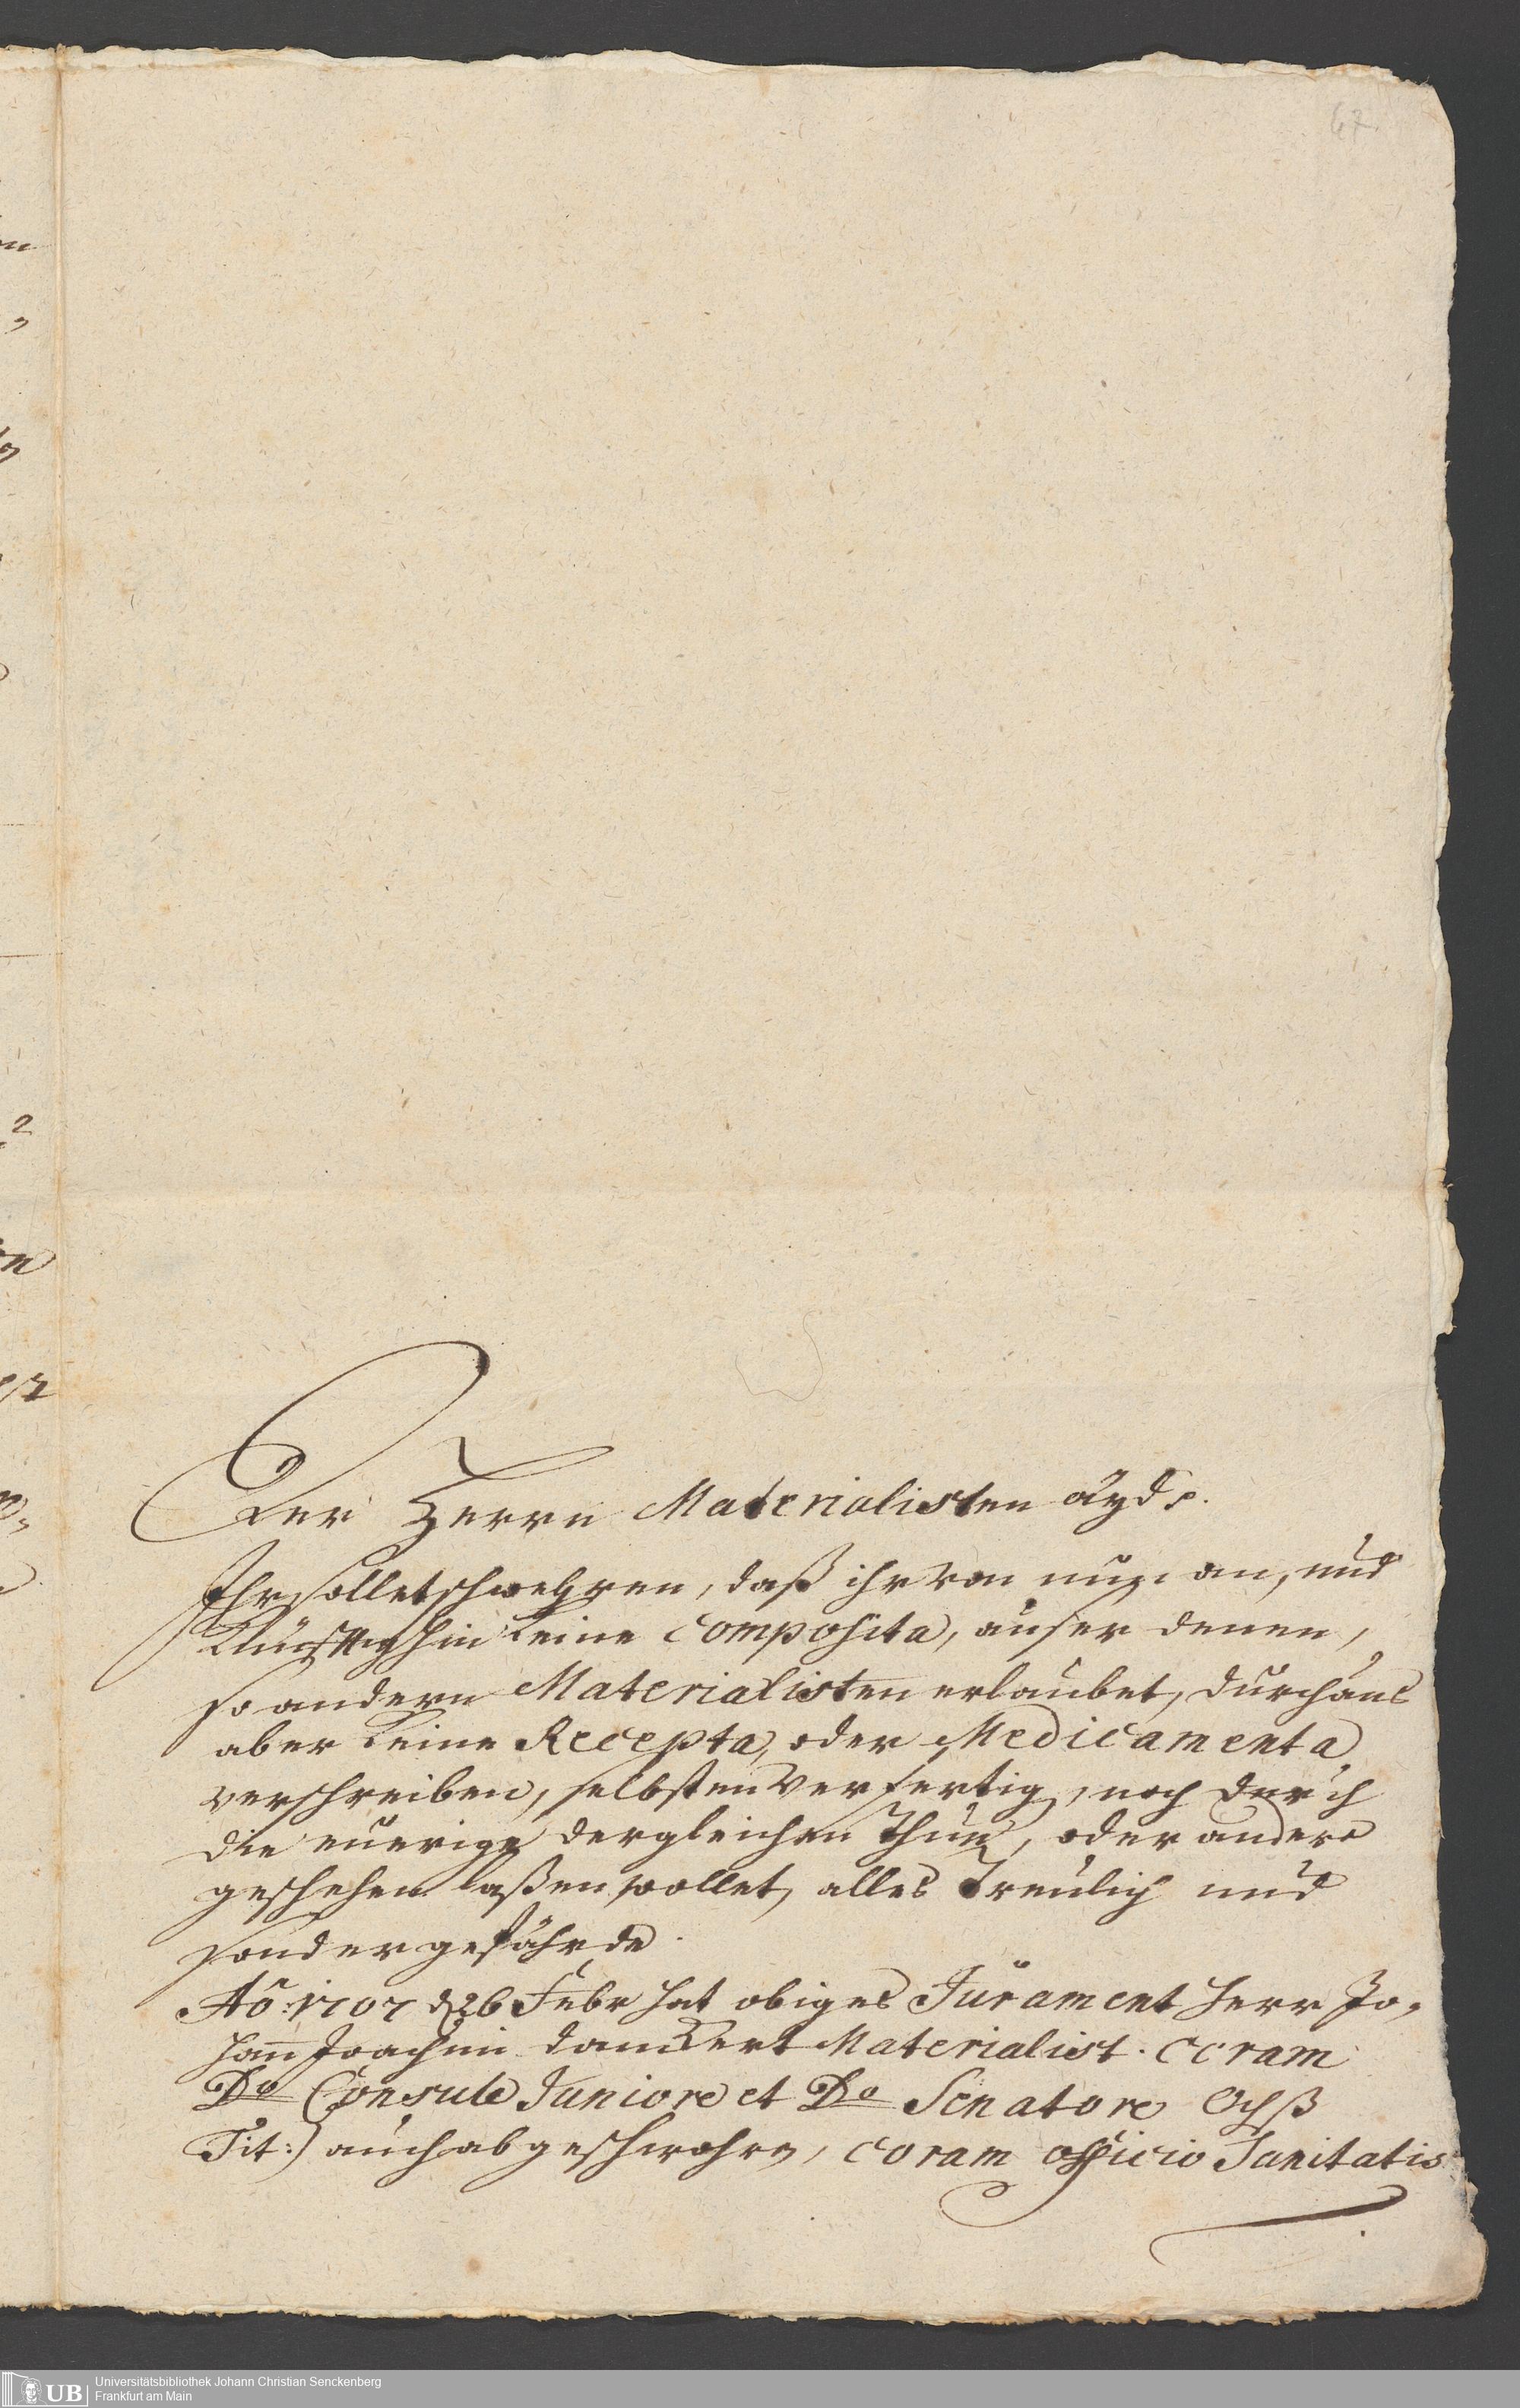 67.
Der Herrn Materialisten äyd.
Ihr sollet schwehren, daß ihr von nun an, und
Künfftig hin keine Composita, auser denen,
so andern Materialisten erlaubet, durchaus
aber keine Recepta, oder Medicamenta
verschreiben, selbsten verfertig, noch durch
die eurige dergleichen thun, oder andere
geschehen laßen wollet, alles treulich und
sonder gefährde.
Aō: 1707 d 26 Febr hat obiges Jurament Herr Jo,
hañ Joachim Materialist. coram
Do Consule Juniore et Do Senatore Ochß
Tit:) auch abgeschwohren, coram officio Sanitatis
UB
Universitätsbibliothek Johann Christian Senckenberg
Frankfurt am Main